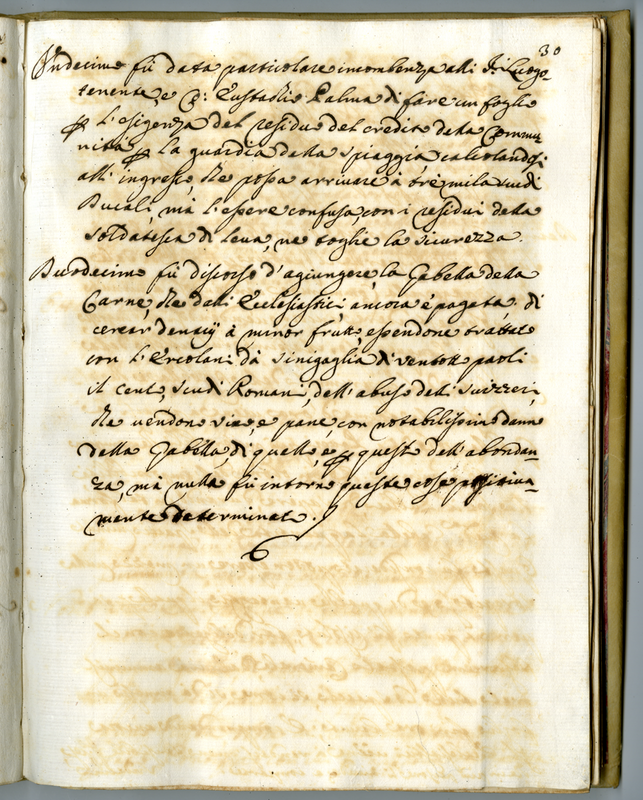 30
Undecimo fù data particolare incombenza alli SS.ri Luogo-
tenente, e P: Eustachio Palma di fare un foglio
p l'esigenza del residuo del credito della Commu-
nità p la guardia della spiaggia, calcolandosi
all'ingresso, che possa arrivare à trè mila scudi
Ducali, mà l'essere confusa con i residui della
soldatesca di leva, ne toglie la sicurezza.
Duodecimo fù discorso d'agiungere la Gabella della
Carne, che dalli Ecclesiastici ancora è pagata. di
cercar denarij à minor frutto essendone trattato
con l'Ercolani dà Sinigaglia di ventotto paoli
il cento, scudi Romani, dell'abuso delli suizzeri,
che vendono vino, e pane, con notabilissimo danno
della Gabella, di quello, e p questo dell'abondan-
za, mà nulla fù intorno queste cose positiva-
mente determinato.